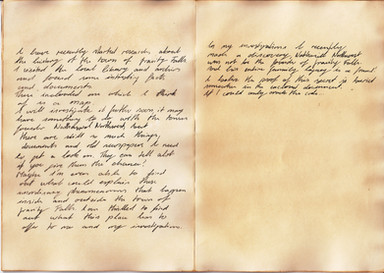 I have recently started research about
the history of the town of Gravity Falls
I visited the local library and archive
and found some interesting facts
and documents.
One enclosed on which I think
of is a map
I will investigate it further soon, it may
have something to do with the town
founder Nathaniel Northwest,
There are still so much things,
documents and old newspapers I need
to get a look on. They can tell a lot
if you give them the chance!
Maybe I'm even able to find
out what could explain this
anordinary phenomenons that happen
inside and outside the town of
Gravity Falls. I am thrilled to find
out what this place has to
offer to me and my investigation
In my investigations I recently
made a discovery, Nathaniel Northwest
was not the founder of Gravity Falls
and his entire family legacy is a fraud
I believe the proof of this secret is buried
somewhere in the enclosed document
If I could only crack this code.